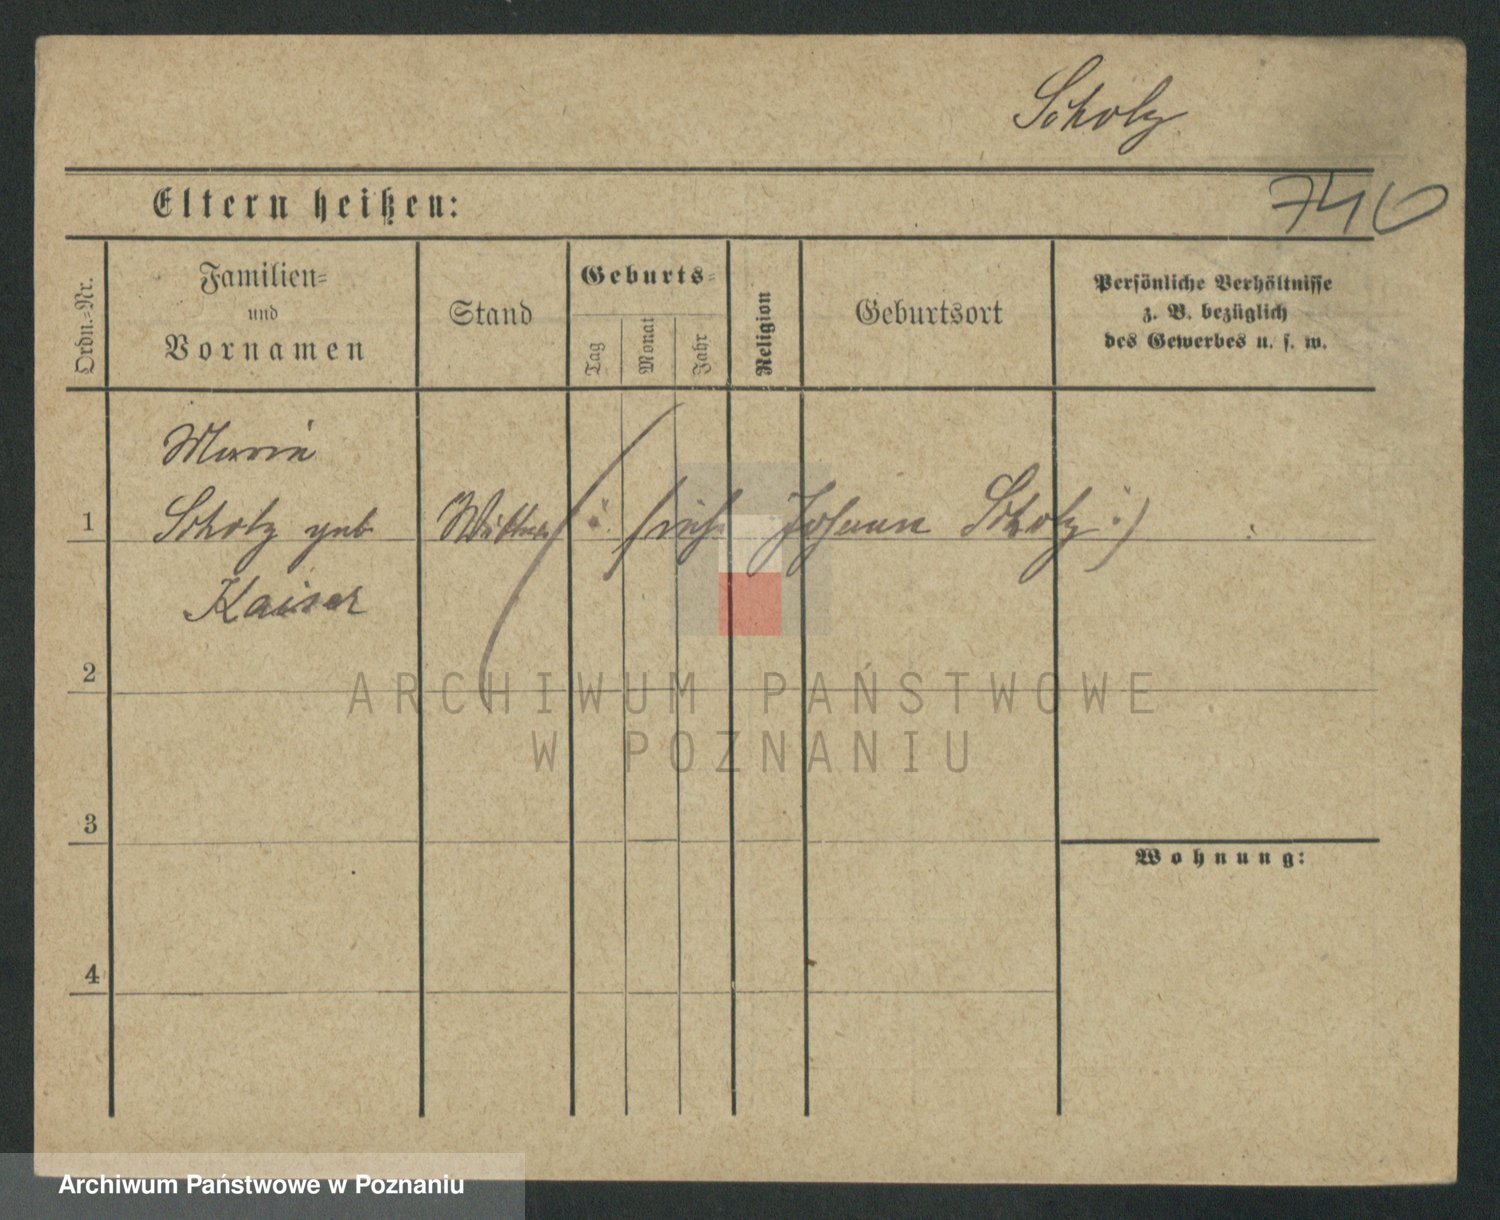 Scholz
Eltern heißen:
740
Ordn.=Nr.
Familien=
und
Vornamen
Stand
Geburts=
Tag
Monat
Jahr
Religion
Geburtsort
Persönliche Verhältnisse
z. B. bezüglich
des Gewerbes u. s. w.
Marie
1 Scholz geb Wittwe (: siehe Johann Scholz :)
Kaiser
2
ARCHIWUM PAŃSTWOWE
W POZNANIU
3
Wohnung:
4
Archiwum Państwowe w Poznaniu